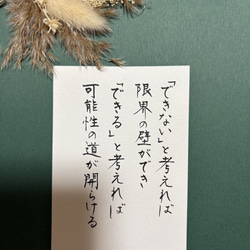 「できない」と考えれば
限界の壁ができ
「できる」と考えれば
可能性の道が開らける